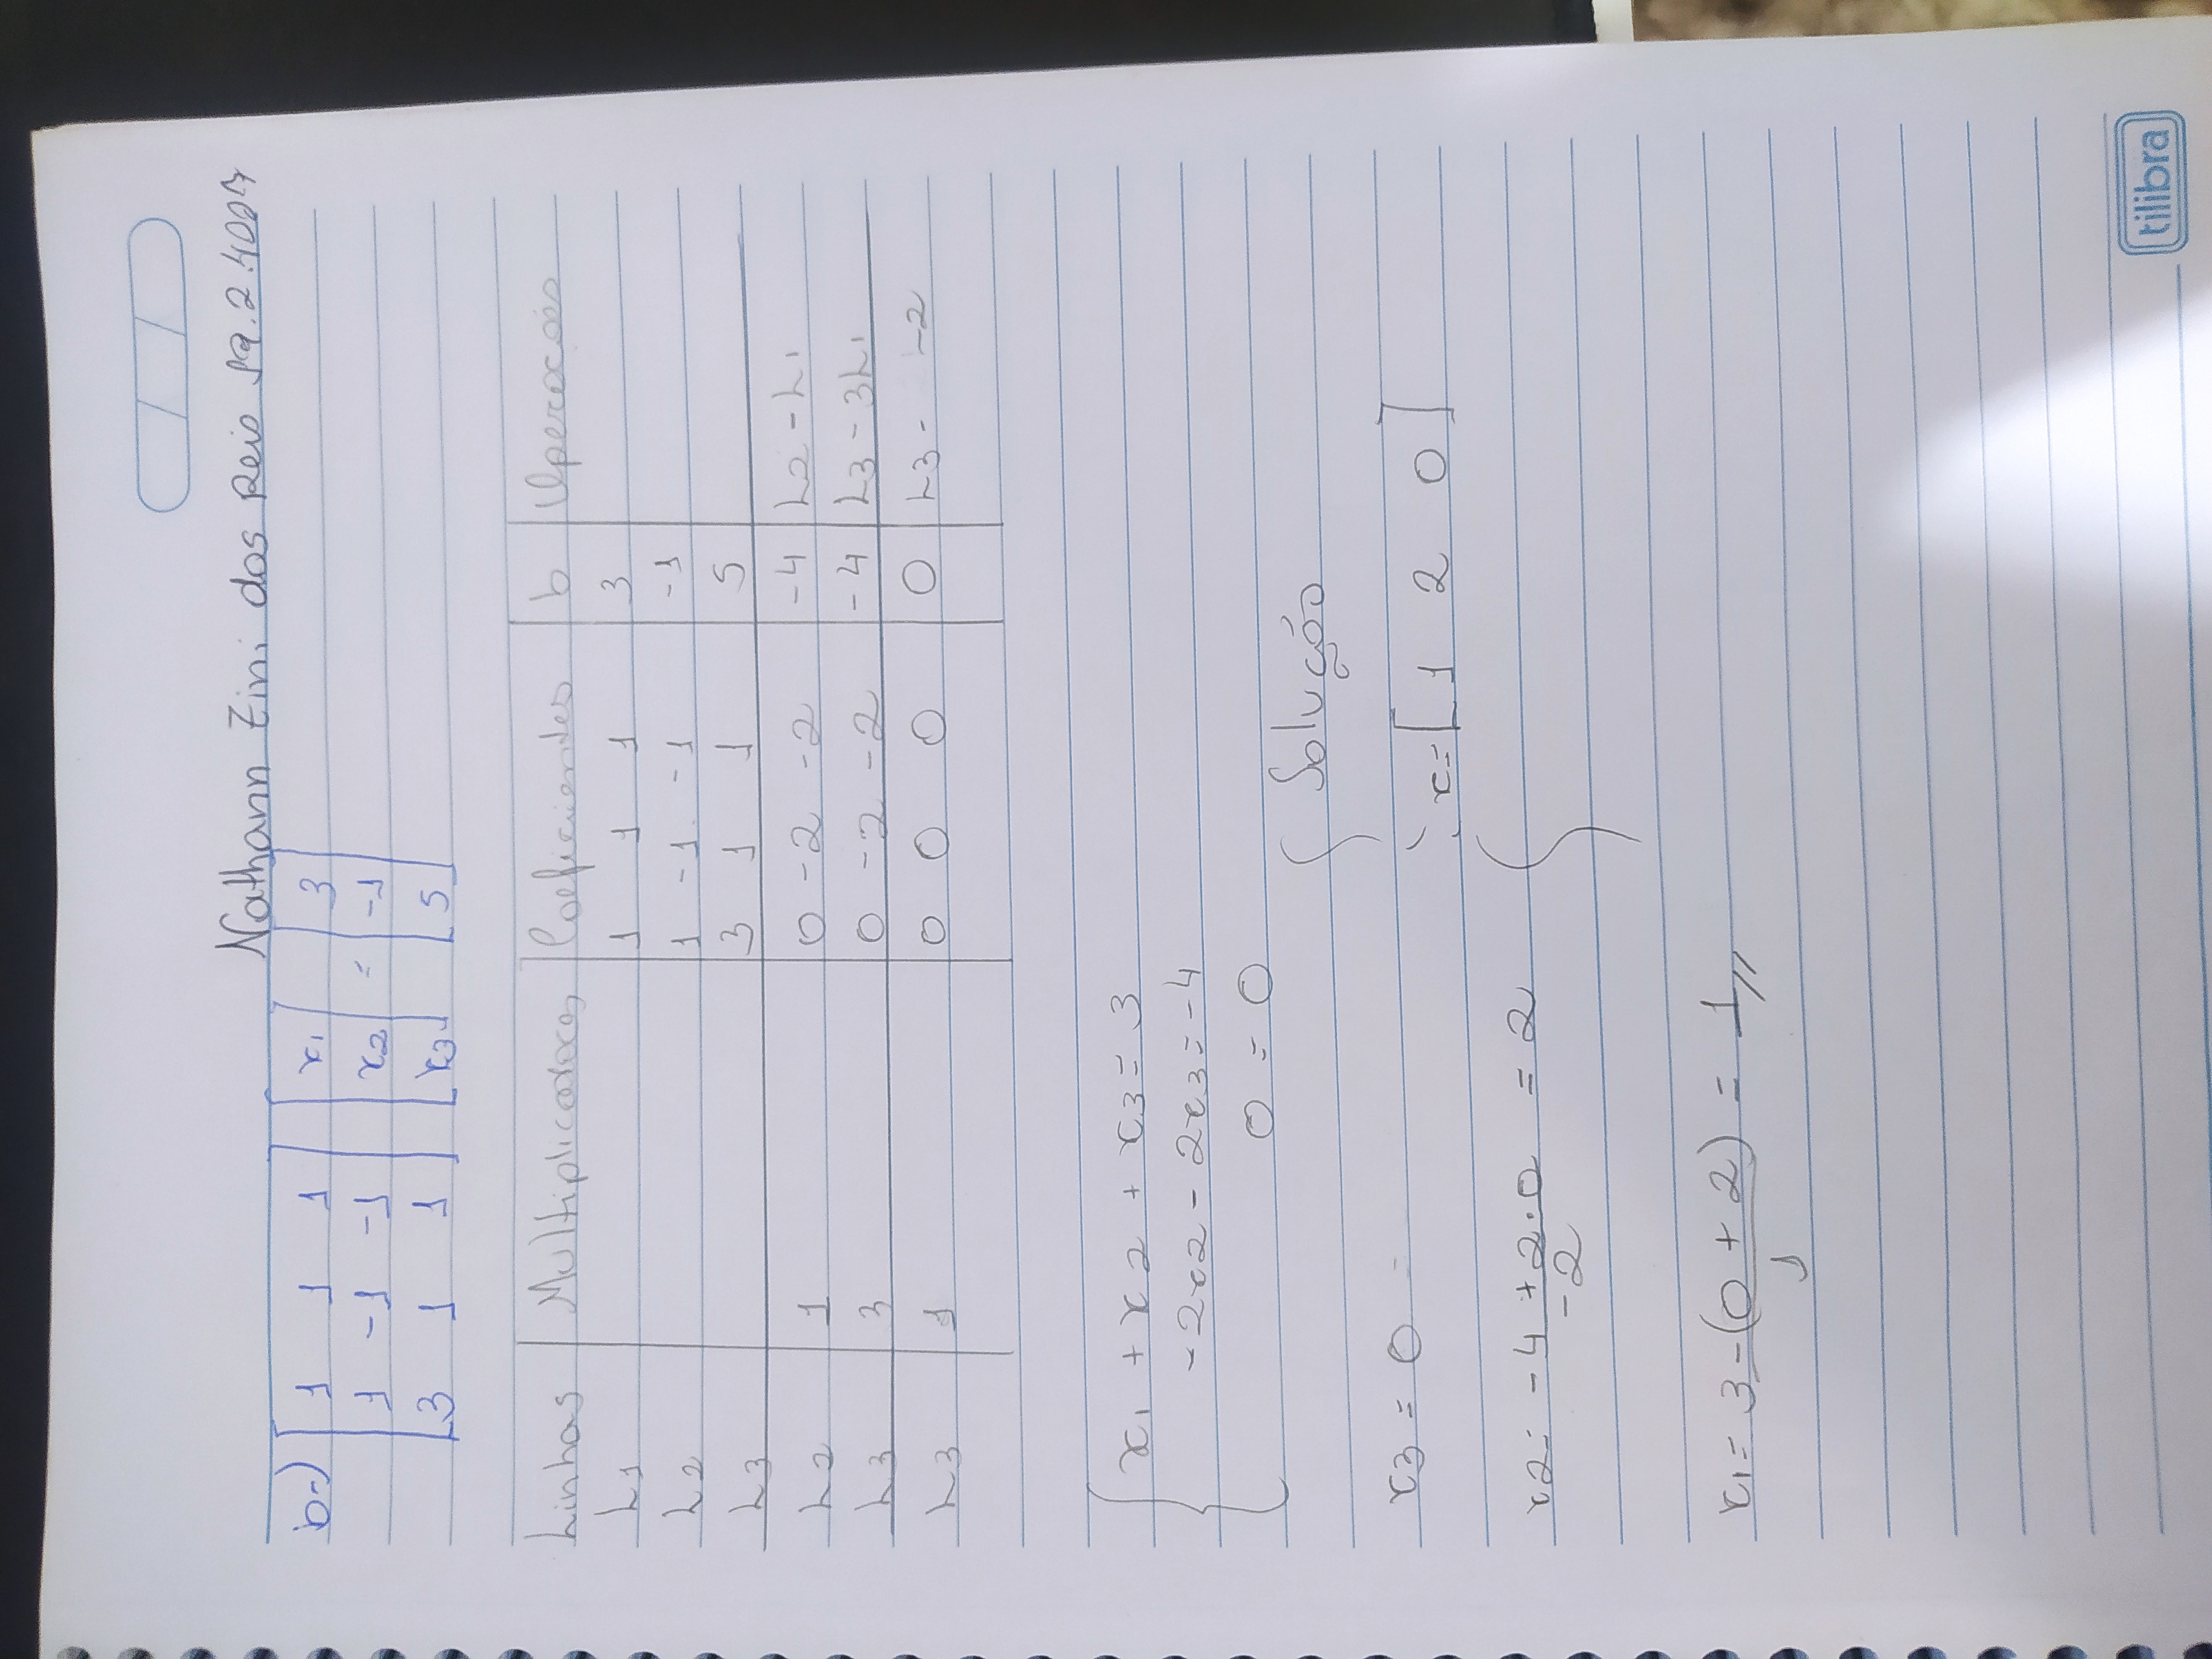 Nathann Zini dos Reis 19.2.4007
b-) [1 1 1] [x1] [3]
[1 -1 -1] [x2] = [-1]
[3 1 1] [x3] [5]
Linhas Multiplicadores Coeficientes b Operacoes
L1 1 1 1 3
L2 1 -1 -1 -1
L3 3 1 1 5
L2 1 0 -2 -2 -4 L2 - L1
L3 3 0 -2 -2 -4 L3 - 3L1
L3 1 0 0 0 0 L3 - L2
x1 + x2 + x3 = 3
-2x2 - 2x3 = -4
0 = 0
Solução
x3 = 0
x = [1 2 0]
x2 = -4 + 2.0 = 2
-2
x1 = 3 - (0 + 2) = 1//
1
tilibra